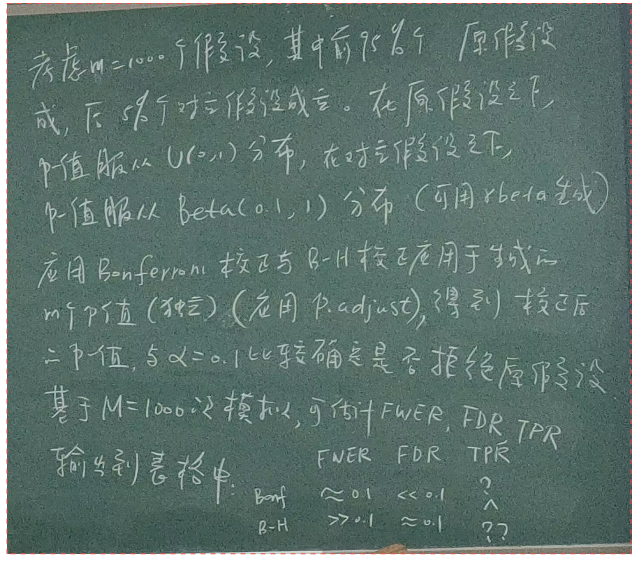 考虑m=1000个假设,其中前95%个 原假设
成,后5%个对立假设成立。在原假设之下,
p-值服从U(0,1)分布,在对立假设之下,
p-值服从Beta(0.1,1)分布(可用rbeta生成)
应用Bonferroni校正与B-H校正应用于生成的
m个p值(独立)(应用p.adjust),得到校正后
的p-值,与α=0.1比较确定是否拒绝原假设
基于M=1000次模拟,可估计FWER, FDR TPR
输出到表格中:
FWER FDR TPR
Bonf ≈0.1 <<0.1 ?
^
B-H >>0.1 ≈0.1 ??